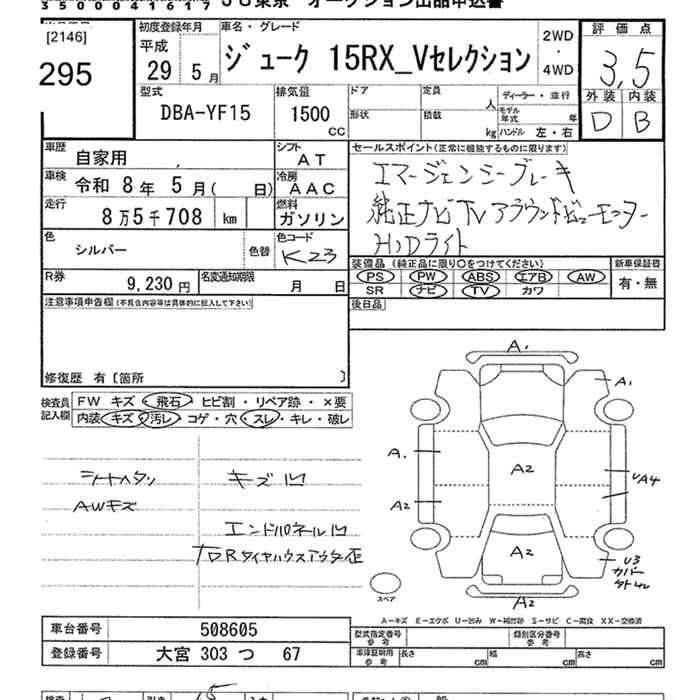 35000041617
[2146]
295
初度登録年月
平成
29 5月
車名・グレード
ジューク 15RX_Vセレクション
2WD
・
4WD
評価点
3,5
外装 内装
D B
型式
DBA-YF15
排気量
1500
CC
ドア
形状
定員
人
積載
kg
ディーラー・並行
モデル年式 年
ハンドル 左・右
車歴
自家用
シフト
AT
車検
令和 8年 5月( 日)
冷房
AAC
走行
8万5千708 km
燃料
ガソリン
色
シルバー
色替
色コード
K23
R券
9,230円
名変通知期限
月 日
セールスポイント(正常に機能するものに限ります)
エマージェンシーブレーキ
純正ナビTVアラウンドビューモニター
HIDライト
装備品(純正品に限り○をつけてください)
PS PW ABS エアB AW
SR ナビ TV カワ
新車保証書
有・無
後日品
注意事項申告欄(不具合内容等は具体的に記入して下さい)
修復歴 有〔箇所 〕
検査員記入欄
FW キズ・飛石・ヒビ割・リペア跡・×要
内装・キズ・汚レ・コゲ・穴・スレ・キレ・破レ
シートヘタリ
キズ凹
AWキズ
エンドパネル凹
DRタイヤハウスアウター歪
A.
A1
A.
A2
A2
A4
A2
U3
カバー
A2
スペア
A−キズ E−エクボ U−凹み W−補修跡 S−サビ C−腐食 XX−交換済
車台番号
508605
登録番号
大宮 303 つ 67
型式指定番号
参考
類別区分番号
参考
車庫証明用
参考
長さ cm
幅 cm
高さ cm
15